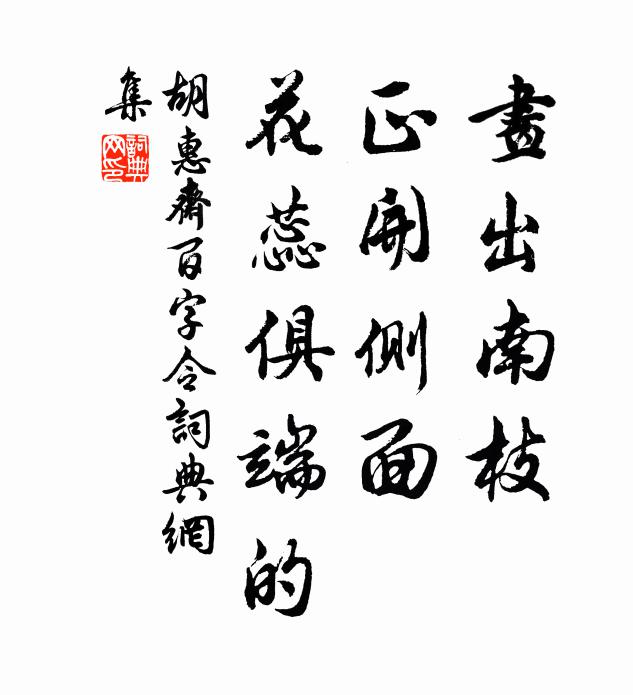 畫出南枝
正開側面
花蕊俱端的
胡惠齊百字令詞典網
集
詞典
网印